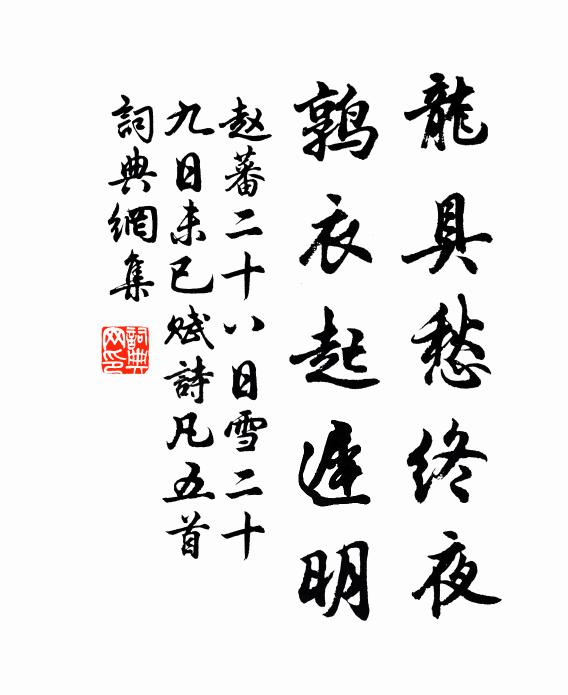 龍具愁終夜
鶉衣起遲明
赵蕃二十八日雪二十
九日未已赋詩凡五首
詞典網集
詞典网印